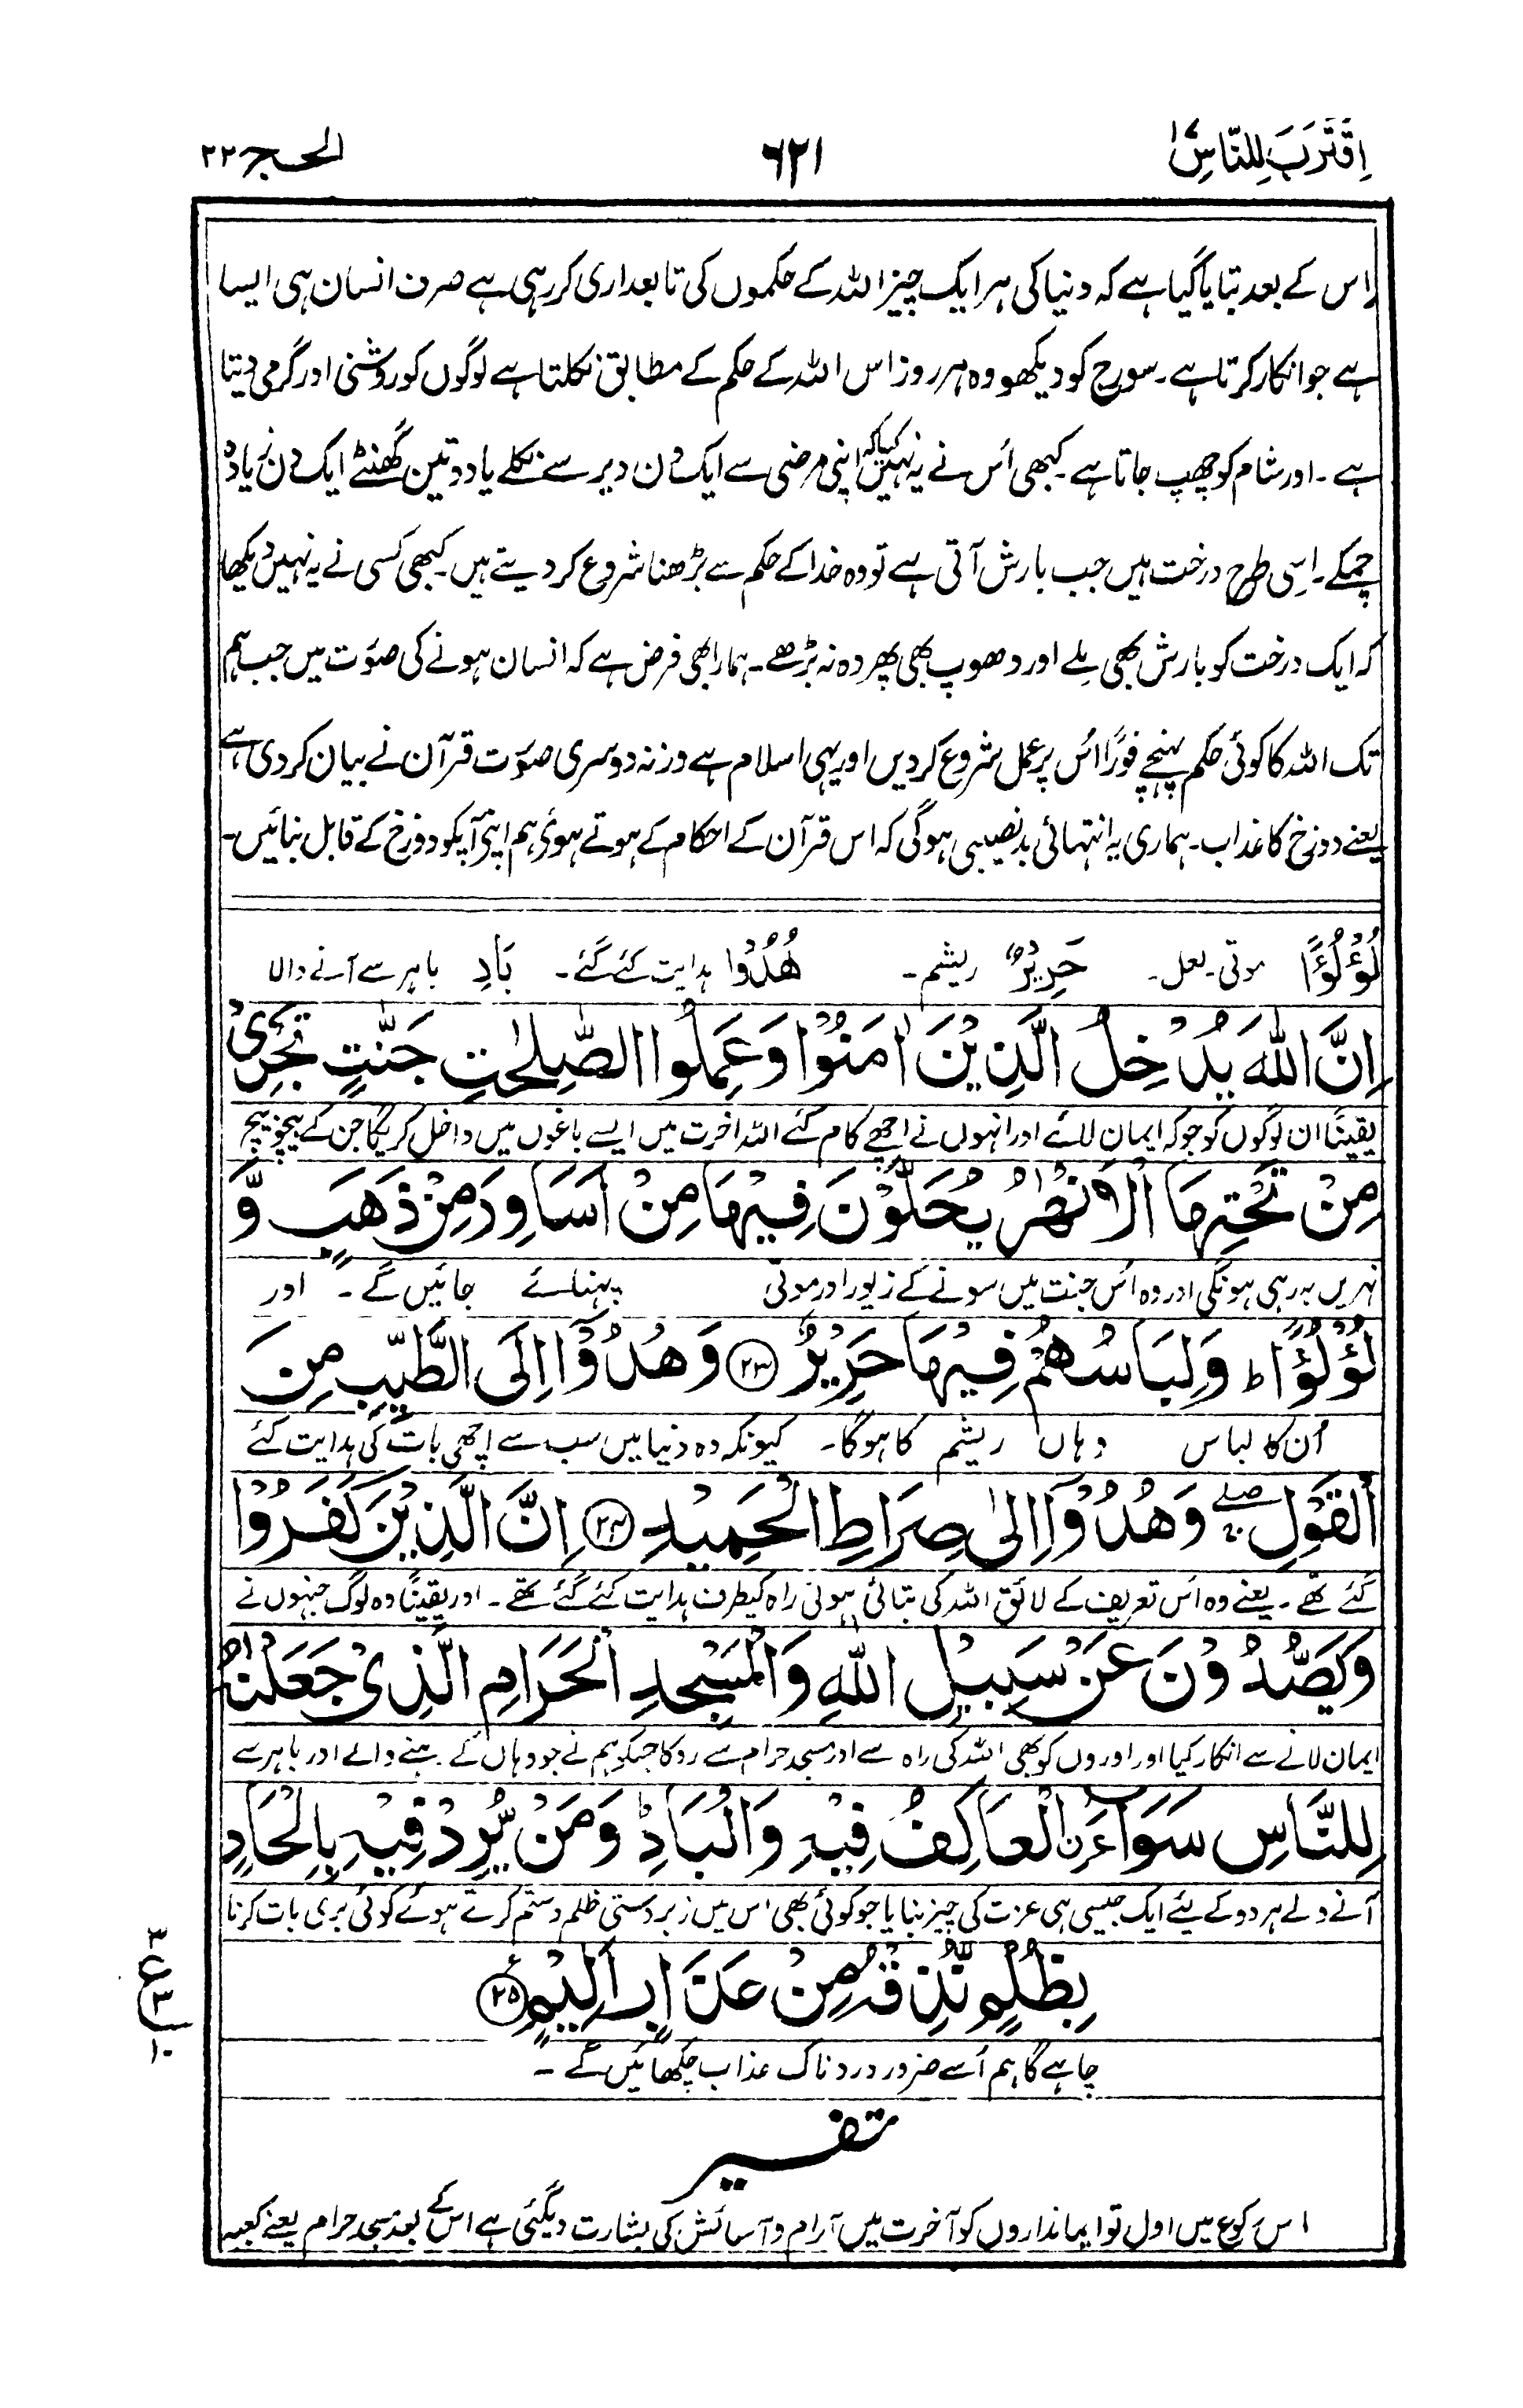 اِقْتَرَبَ لِلنَّاسِ ۱۷
۶۲۱
الحج ۲۲
اس کے بعد بتایا گیا ہے کہ دنیا کی ہر ایک چیز اللہ کے حکموں کی تابعداری کر رہی ہے صرف انسان ہی ایسا
ہے جو انکار کرتا ہے۔ سورج کو دیکھو وہ ہر روز اس اللہ کے حکم کے مطابق نکلتا ہے لوگوں کو روشنی اور گرمی دیتا
ہے۔ اور شام کو چھپ جاتا ہے۔ کبھی اُس نے یہ نہیں کیا کہ اپنی مرضی سے ایک دن دیر سے نکلے یا دو تین گھنٹے ایک دن زیادہ
چمکے۔ اِسی طرح درخت ہیں جب بارش آتی ہے تو وہ خدا کے حکم سے بڑھنا شروع کر دیتے ہیں۔ کبھی کسی نے یہ نہیں دیکھا
کہ ایک درخت کو بارش بھی ملے اور دھوپ بھی پھر وہ نہ بڑھے۔ ہمارا بھی فرض ہے کہ انسان ہونے کی صوٗت میں جب ہم
تک اللہ کا کوئی حکم پہنچے فورًا اُس پر عمل شروع کر دیں اور یہی اسلام ہے ورنہ دوسری صوٗت قرآن نے بیان کر دی ہے
یعنے دوزخ کا عذاب۔ ہماری یہ انتہائی بدنصیبی ہوگی کہ اس قرآن کے احکام کے ہوتے ہوئے ہم اپنے آپکو دوزخ کے قابل بنائیں۔
لُؤْلُؤًا موتی۔ لعل۔ حَرِيْرٌ ریشم۔ هُدُوْا ہدایت کئے گئے۔ بَادِ باہر سے آنے والا
اِنَّ اللّٰهَ يُدْخِلُ الَّذِيْنَ اٰمَنُوْا وَعَمِلُوا الصّٰلِحٰتِ جَنّٰتٍ تَجْرِيْ
یقینًا ان لوگوں کو جو کہ ایمان لائے اور انہوں نے اچھے کام کئے اللہ آخرت میں ایسے باغوں میں داخل کریگا جن کے بیچوبیچ
مِنْ تَحْتِهَا الْاَنْهٰرُ يُحَلَّوْنَ فِيْهَا مِنْ اَسَاوِرَ مِنْ ذَهَبٍ وَّ
نہریں بہ رہی ہونگی اور وہ اُس جنت میں سونے کے زیور اور موتی پہنائے جائیں گے۔ اور
لُؤْلُؤًا ؕ وَلِبَاسُهُمْ فِيْهَا حَرِيْرٌ ۝۲۳ وَهُدُوْٓا اِلَى الطَّيِّبِ مِنَ
اُن کا لباس وہاں ریشم کا ہوگا۔ کیونکہ وہ دنیا میں سب سے اچھی بات کی ہدایت کئے
الْقَوْلِ ۖ وَهُدُوْٓا اِلٰى صِرَاطِ الْحَمِيْدِ ۝۲۴ اِنَّ الَّذِيْنَ كَفَرُوْا
گئے تھے۔ یعنے وہ اُس تعریف کے لائق اللہ کی بتائی ہوئی راہ کیطرف ہدایت کئے گئے تھے۔ اور یقینًا وہ لوگ جنہوں نے
وَيَصُدُّوْنَ عَنْ سَبِيْلِ اللّٰهِ وَالْمَسْجِدِ الْحَرَامِ الَّذِيْ جَعَلْنٰهُ
ایمان لانے سے انکار کیا اور اوروں کو بھی اللہ کی راہ سے اور مسجد حرام سے روکا جسکو ہم نے جو وہاں کے رہنے والے اور باہر سے
لِلنَّاسِ سَوَآءَ ِۨالْعَاكِفُ فِيْهِ وَالْبَادِ ؕ وَمَنْ يُّرِدْ فِيْهِ بِاِلْحَادٍۭ
آنے والے ہر دو کے لئے ایک جیسی ہی عزت کی چیز بنایا جو کوئی بھی اس میں زبردستی ظلم و ستم کرتے ہوئے کوئی بری بات کرنا
بِظُلْمٍ نُّذِقْهُ مِنْ عَذَابٍ اَلِيْمٍ ۝۲۵
۳
ع
۳
۱۰
چاہے گا ہم اُسے ضرور دردناک عذاب چکھائیں گے۔
تفسیر
اس رکوع میں اول تو ایمانداروں کو آخرت میں آرام و آسائش کی بشارت دیگئی ہے اس کے بعد مسجد حرام یعنے کعبہ